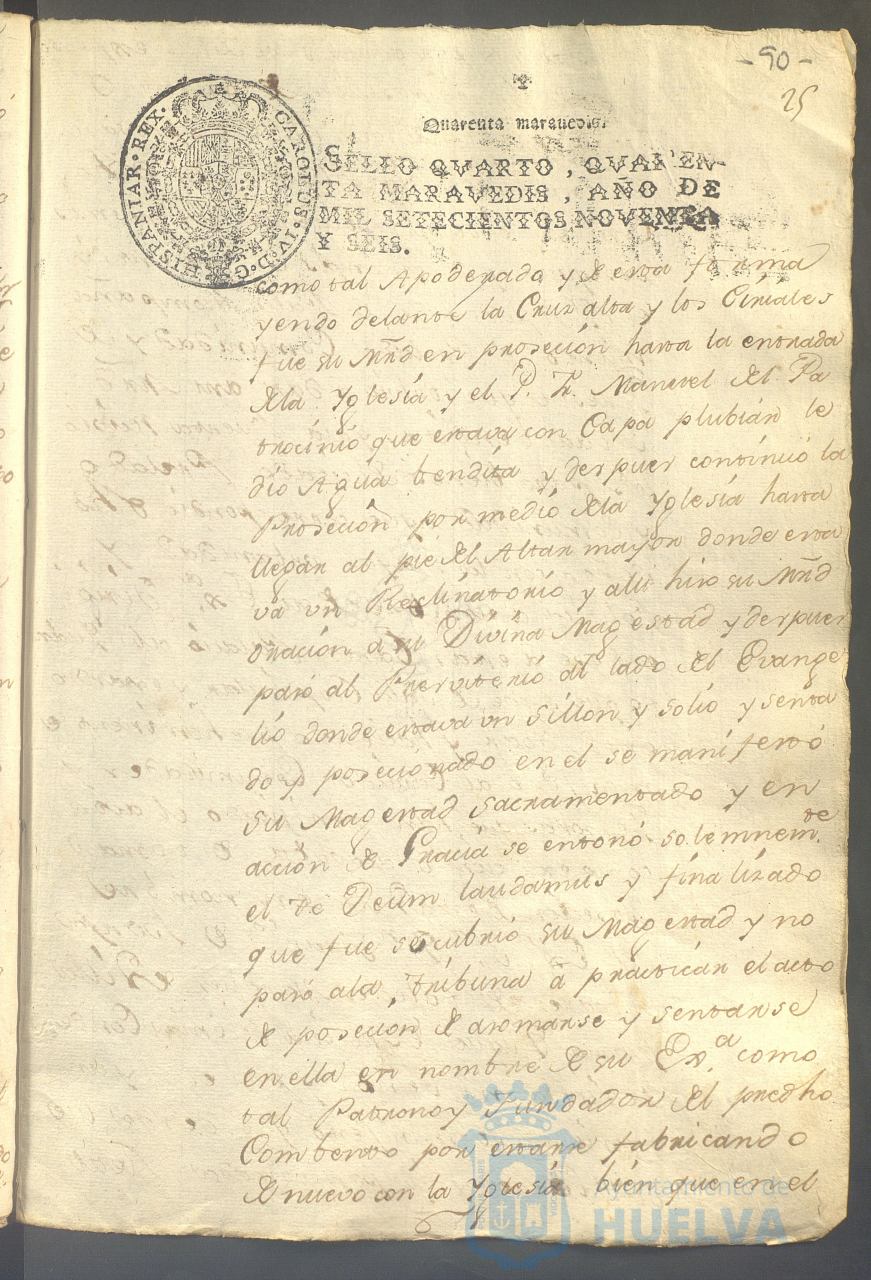 -90-
25
Quarenta maravedis.
HISPANIAR·REX. CAROLUS·IV·D·G·
SELLO QVARTO, QVAREN-
TA MARAVEDIS, AÑO DE
MIL SETECIENTOS NOVENTA
Y SEIS.
como tal Apoderado y de esta forma
yendo delante la Cruz alta y los Ciriales
fue su Mrd en prosecion hasta la entrada
de la Yglesia y el P. Fr. Manuel del Pa
trocinio que estava con Capa plubial le
dio Agua bendita y despues continuó la
Prosecion por medio de la Yglesia hasta
llegar al pie del Altar mayor donde esta
va un Reclinatorio y alli hizo su Mrd
oracion a su Divina Magestad y despues
pasó al Presviterio al lado del Evange
lio donde estava un Sillon y solio y senta
do y posecionado en el se manifestó
su Magestad Sacramentado y en
acción de Gracia se entonó solemnemte.
el Te Deum laudamus y finalizado
que fue se cubrió su Magestad y no
pasó a la tribuna á practicar el acto
de posecion de asomarse y sentarse
en ella en nombre de su Exa. como
tal Patrono y Fundador del predho
Combento por estarse fabricando
de nuevo con la Yglesia bien que en el
Ayuntamiento de
HUELVA